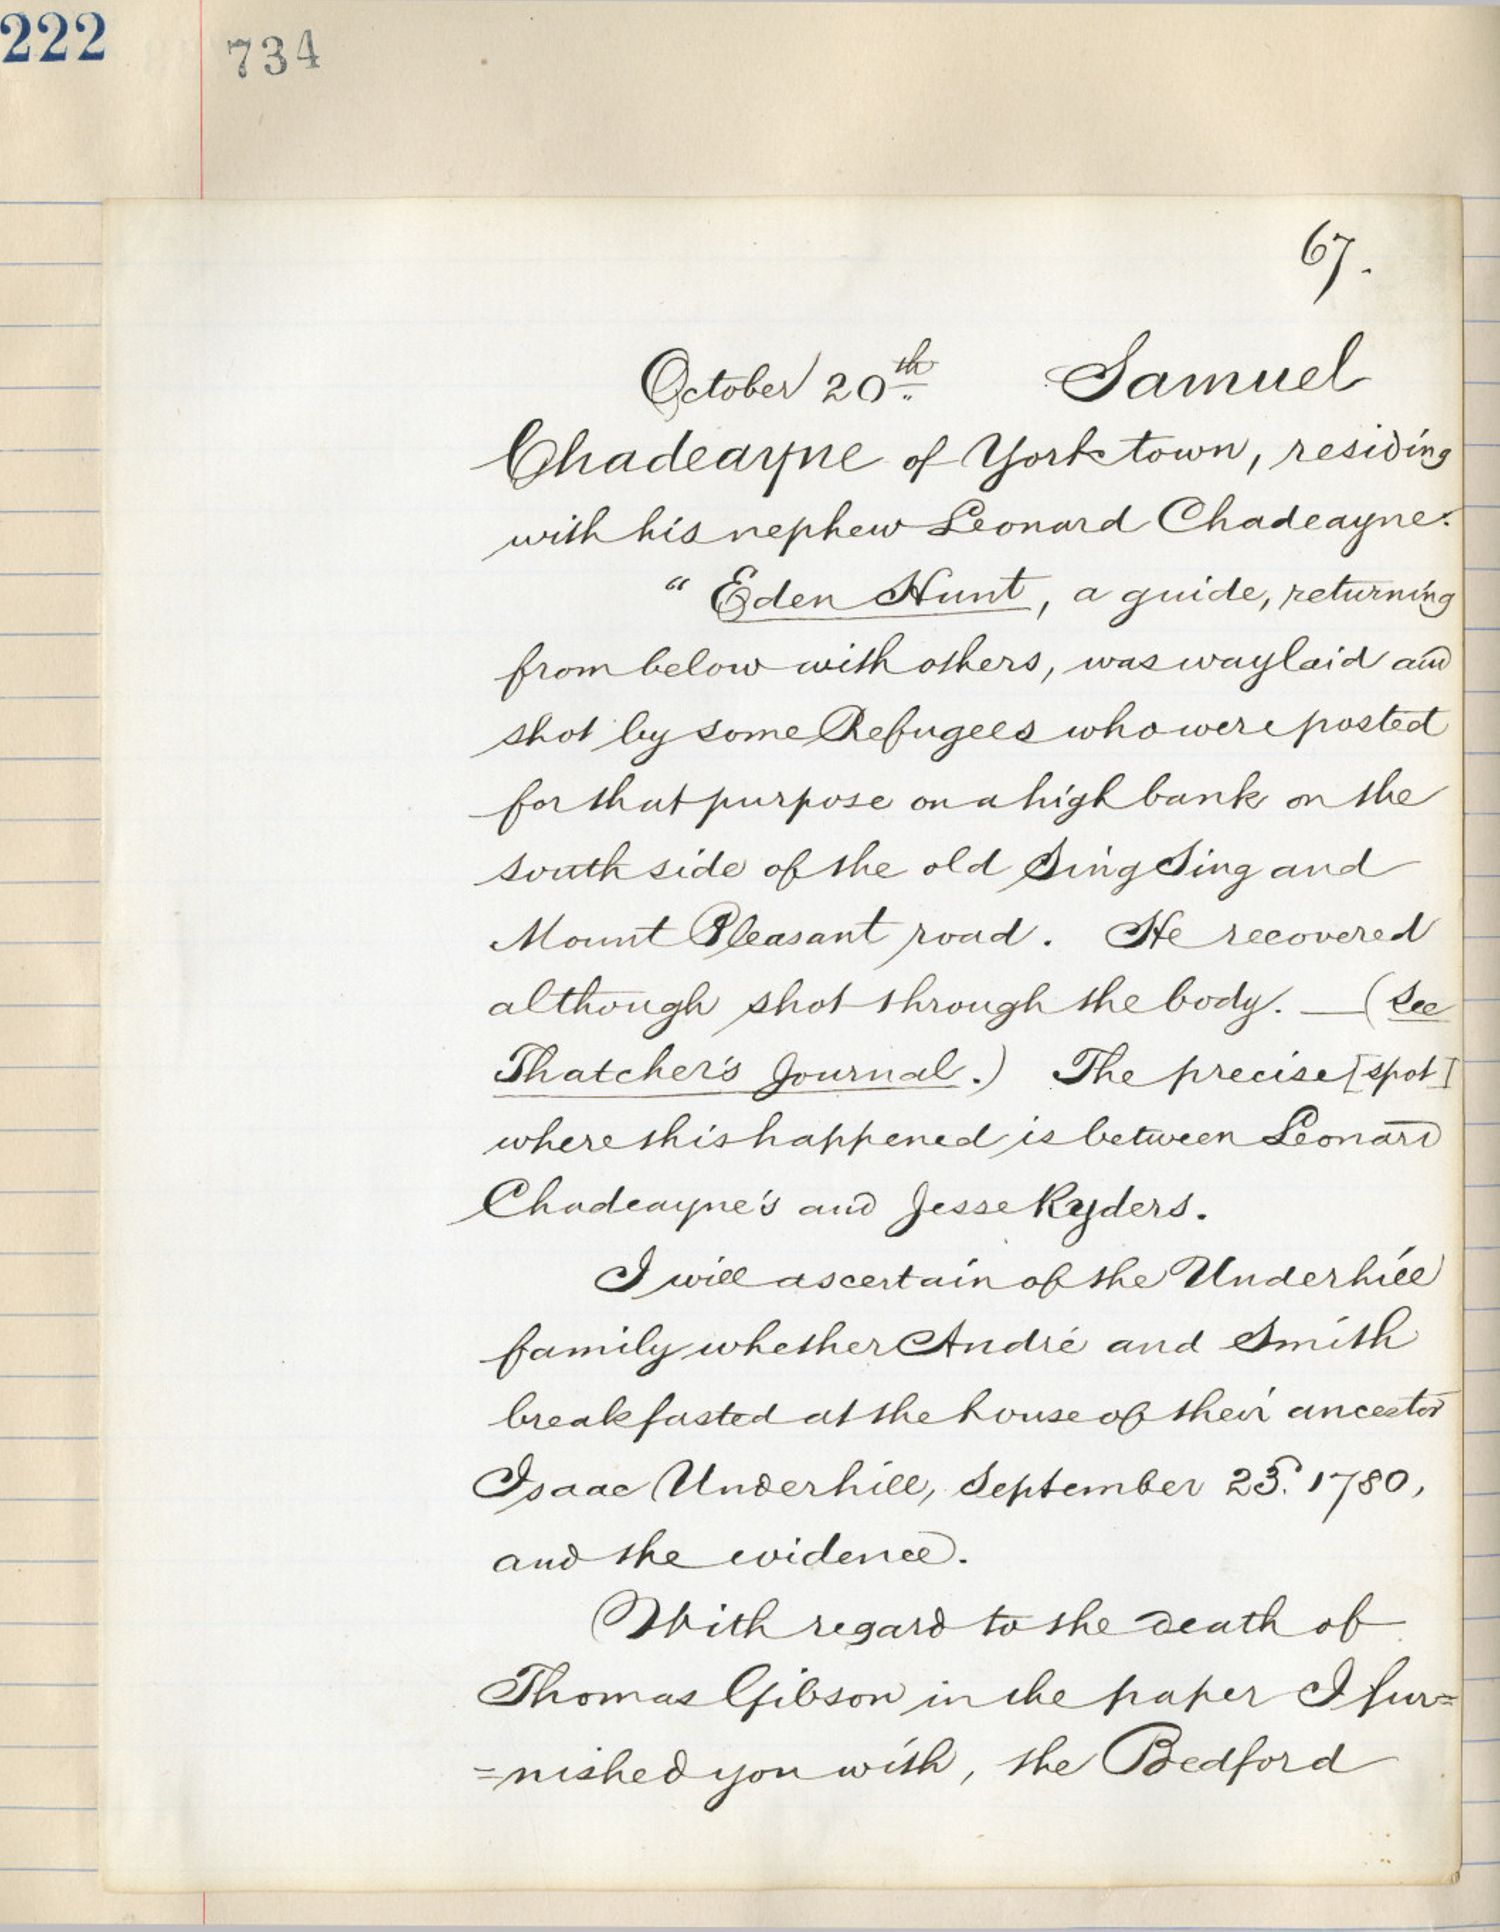 222
734
67.
October 20th Samuel
Chadeayne of Yorktown, residing
with his nephew Leonard Chadeayne:
"Eden Hunt, a guide, returning
from below with others, was waylaid and
shot by some Refugees who were posted
for that purpose on a high bank on the
south side of the old Sing Sing and
Mount Pleasant road. He recovered
although shot through the body. — (See
Thatcher's Journal.) The precise [spot]
where this happened is between Leonard
Chadeayne's and Jesse Ryders.
I will ascertain of the Underhill
family whether André and Smith
breakfasted at the house of their ancestor
Isaac Underhill, September 23. 1780,
and the evidence.
With regard to the death of
Thomas Gibson in the paper I fur=
=nished you with, the Bedford